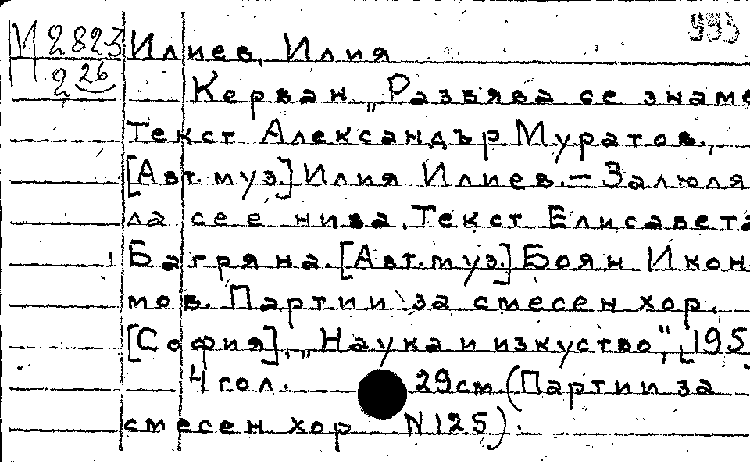 993
М2823 Илиев, Илия
2 26
Керван „Развява се знаме
Текст Александър Муратов.,
[Авт. муз.] Илия Илиев. – Залюля
ла се е нива. Текст Елисавета
Багряна. [Авт. муз.] Боян Икон
мов. Партии за смесен хор.
[София], „Наука и изкуство", [195
4 гол. 29см (Партии за
смесен хор N 125).